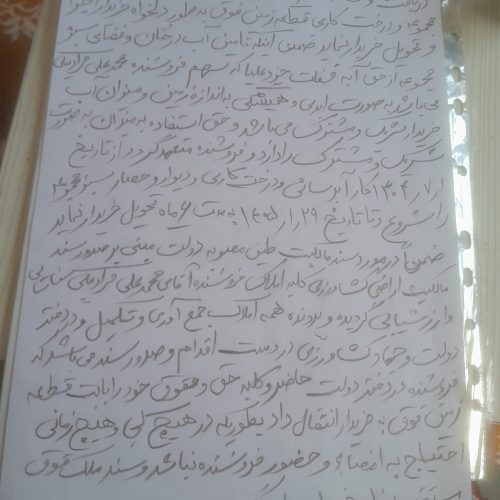 دریافت و
مجموعه و درخت کاری قطعه زمین فوق به طور دلخواه خریدار اجرا
و تحویل خریدار نماید ضمن اینکه تامین آب درختان و فضای سبز
مجموعه از حق آبه قنات که سهم فروشنده محمد علی مرادعلی
می باشد به صورت ابدی و همیشگی به اندازه زمین و میزان آب
خریدار شریک و مشترک می باشد و حق استفاده به میزان به صورت
شریک و مشترک را دارد و فروشنده متعهد گردد از تاریخ
۱۴۰۴/۷/۱ کار آبرسانی و درخت کاری و دیوار و حصار سبز مجموعه
را شروع و تا تاریخ ۱۴۰۵/۱/۲۹ به مدت ۶ ماه تحویل خریدار نماید
ضمناً در مورد سند مالکیت طبق مصوبه دولت مبنی بر صدور سند
مالکیت اراضی کشاورزی کلیه املاک فروشنده آقای محمد علی مرادعلی شناسایی
و ارزشیابی گردیده و پرونده همه املاک جمع آوری و تکمیل و در دفتر
دولت و جهاد کشاورزی در دست اقدام و صدور سند می باشد که
فروشنده در دفتر دولت حاضر و کلیه حق و حقوق خود را بابت قطعه
زمین فوق به خریدار انتقال داد بطوریکه در هیچ کجا و هیچ زمانی
احتیاج به امضاء و حضور فروشنده نباشد و سند ملک فوق